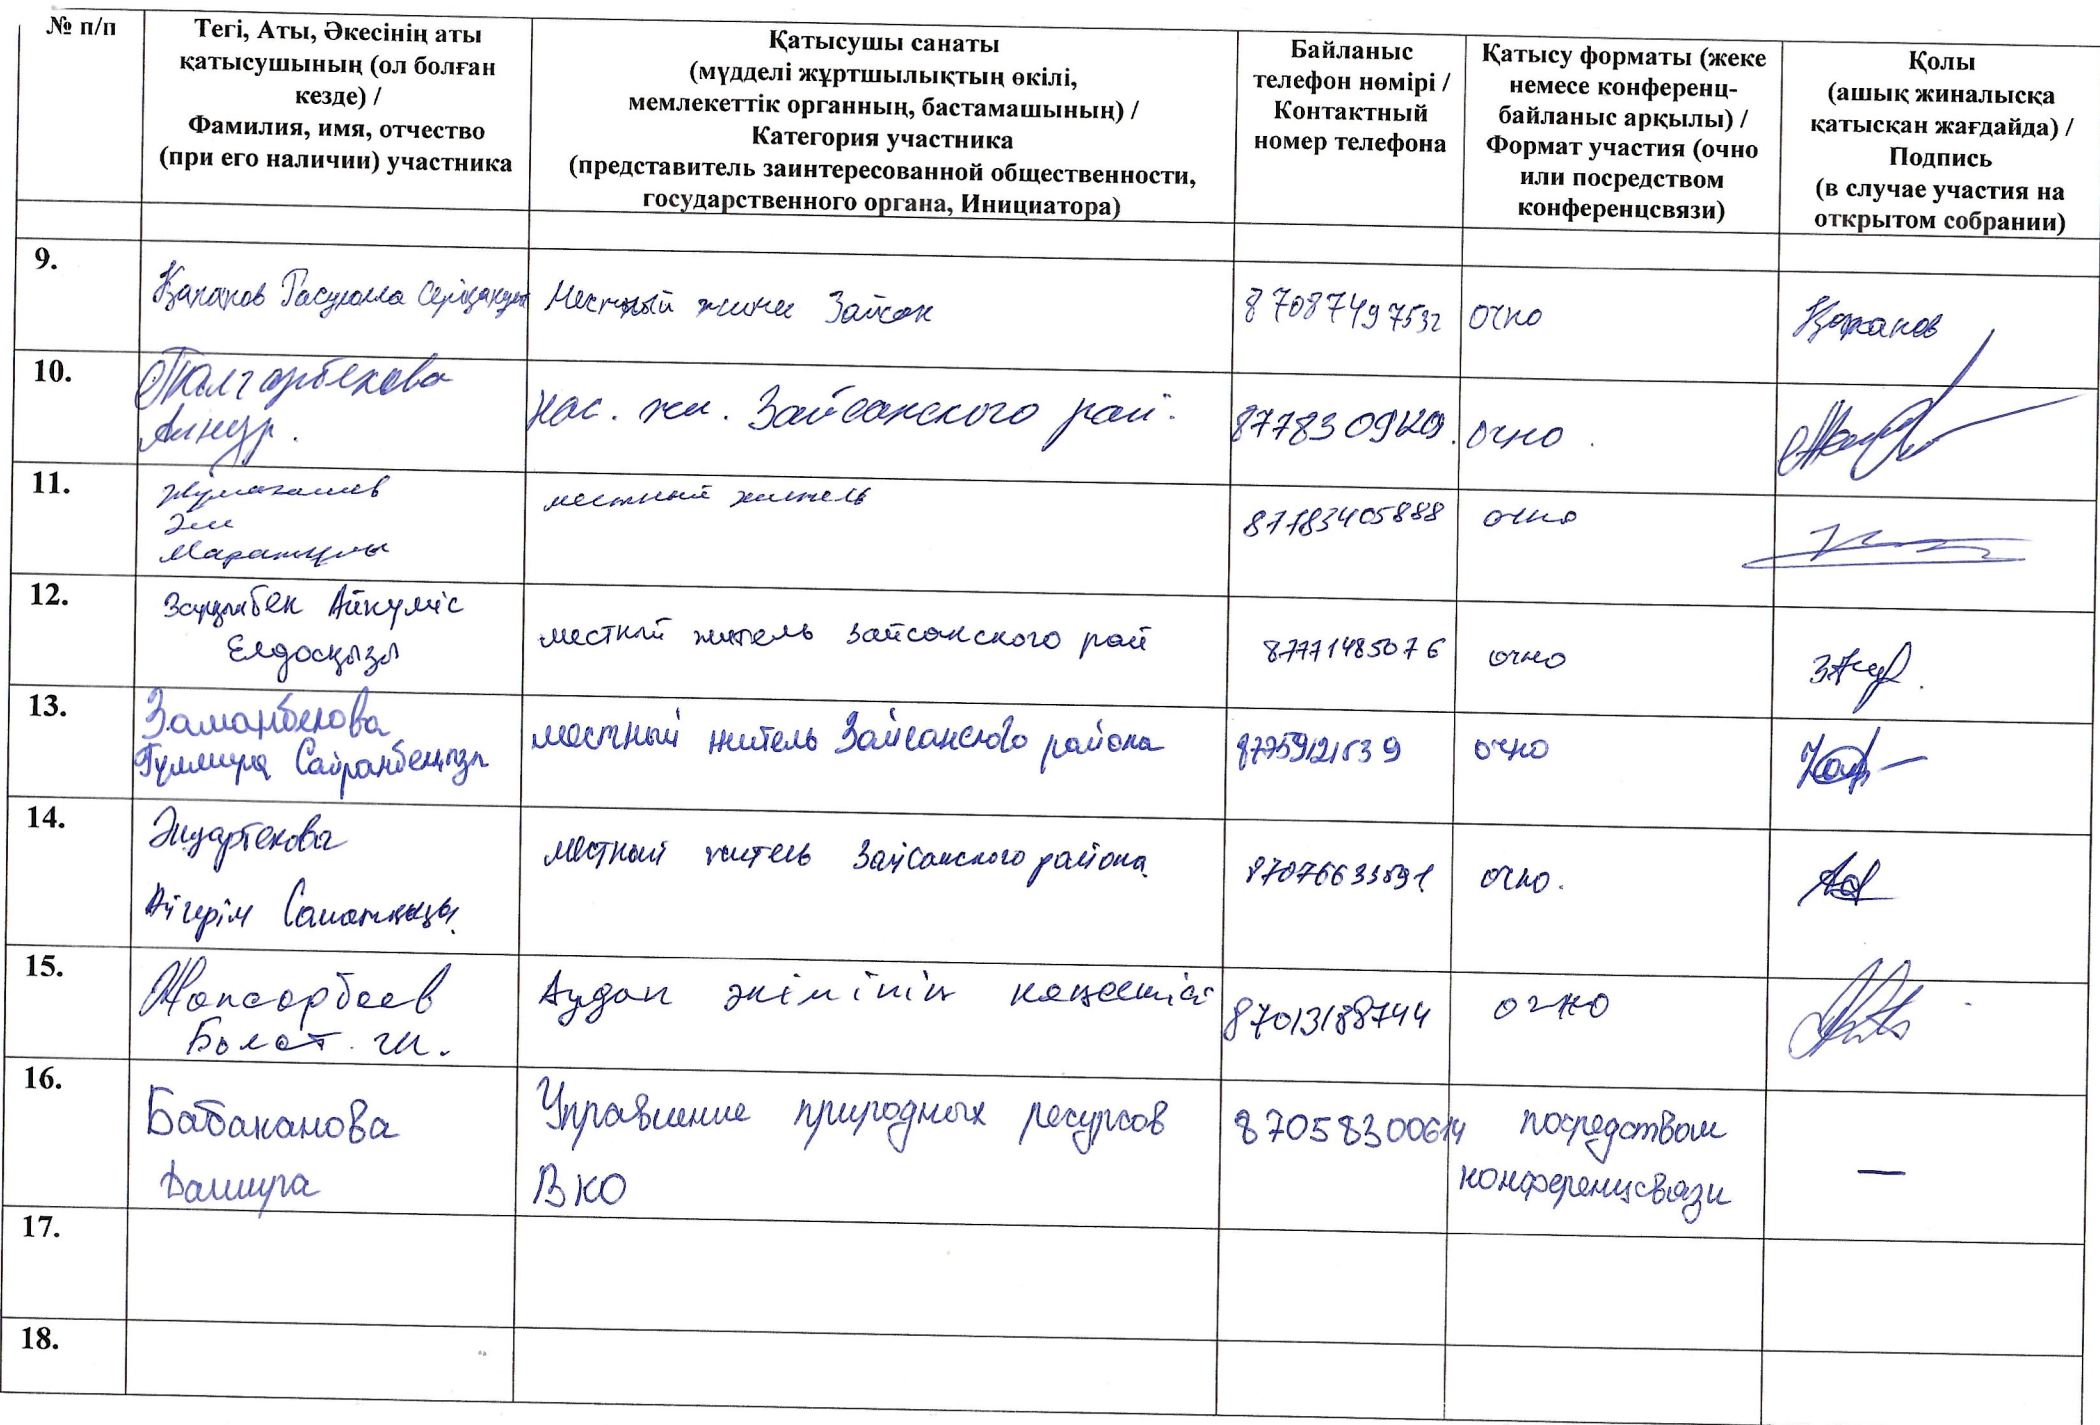 № п/п
Тегі, Аты, Әкесінің аты
қатысушының (ол болған
кезде) /
Фамилия, имя, отчество
(при его наличии) участника
Қатысушы санаты
(мүдделі жұртшылықтың өкілі,
мемлекеттік органның, бастамашының) /
Категория участника
(представитель заинтересованной общественности,
государственного органа, Инициатора)
Байланыс
телефон нөмірі /
Контактный
номер телефона
Қатысу форматы (жеке
немесе конференц-
байланыс арқылы) /
Формат участия (очно
или посредством
конференцсвязи)
Қолы
(ашық жиналысқа
қатысқан жағдайда) /
Подпись
(в случае участия на
открытом собрании)
9.
Местный Зайсан
87087497532
очно
10.
Талгарбекова
Айнур.
жи. Зайсанского рай.
очно.
11.
Маратұлы
местный житель
87783405888
очно
12.
Айкуміс
Елдосқызы
местный житель Зайсанского рай
87771485076
очно
13.
Заманбекова
Гулмира Сайранбекқызы
местный житель Зайсанского района
87759121539
очно
14.
Айгерім Саматқызы.
местный житель Зайсанского района
очно.
15.
Жапсарбаев
Болат
Аудан әкімінің кеңесшісі
87013188744
очно
16.
Бабаканова
Дамира
Управление природных ресурсов
ВКО
посредством
конференцсвязи
—
17.
18.